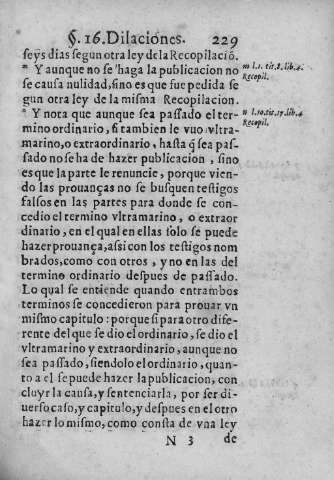 §. 16. Dilaciones. 229
seys dias segun otra ley de la Recopilació.
m Y aunque no se haga la publicacion no
m l. 1. tit. 8. lib. 4.
Recopil.
se causa nulidad, sino es que fue pedida se
gun otra ley de la misma Recopilacion.
n Y nota que aunque sea passado el ter-
n l. 10. tit. 17. lib. 4
Recopil.
mino ordinario, si tambien le vuo vltra-
marino, o extraordinario, hasta q̃ sea pas-
sado no se ha de hazer publicacion, sino
es que la parte le renuncie, porque vien-
do las prouanças no se busquen testigos
falsos en las partes para donde se con-
cedio el termino vltramarino, o extraor
dinario, en el qual en ellas solo se puede
hazer prouança, assi con los testigos nom
brados, como con otros, y no en las del
termino ordinario despues de passado.
Lo qual se entiende quando entrambos
terminos se concedieron para prouar vn
mismo capitulo: porque si para otro dife-
rente del que se dio el ordinario, se dio el
vltramarino y extraordinario, aunque no
sea passado, siendolo el ordinario, quan-
to a el se puede hazer la publicacion, con
cluyr la causa, y sentenciarla, por ser di-
uerso caso, y capitulo, y despues en el otro
hazer lo mismo, como consta de vna ley
N 3 de